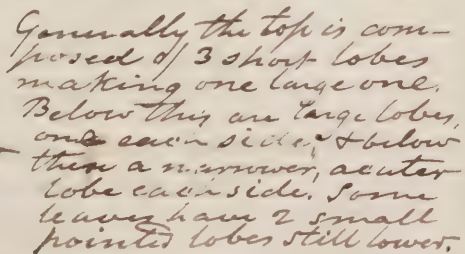 Generally the top is com-
posed of 3 short lobes
making one large one.
Below this are large lobes,
one each side, & below
these a narrower, acuter
lobe each side. Some
leaves have 2 small
pointed lobes still lower.